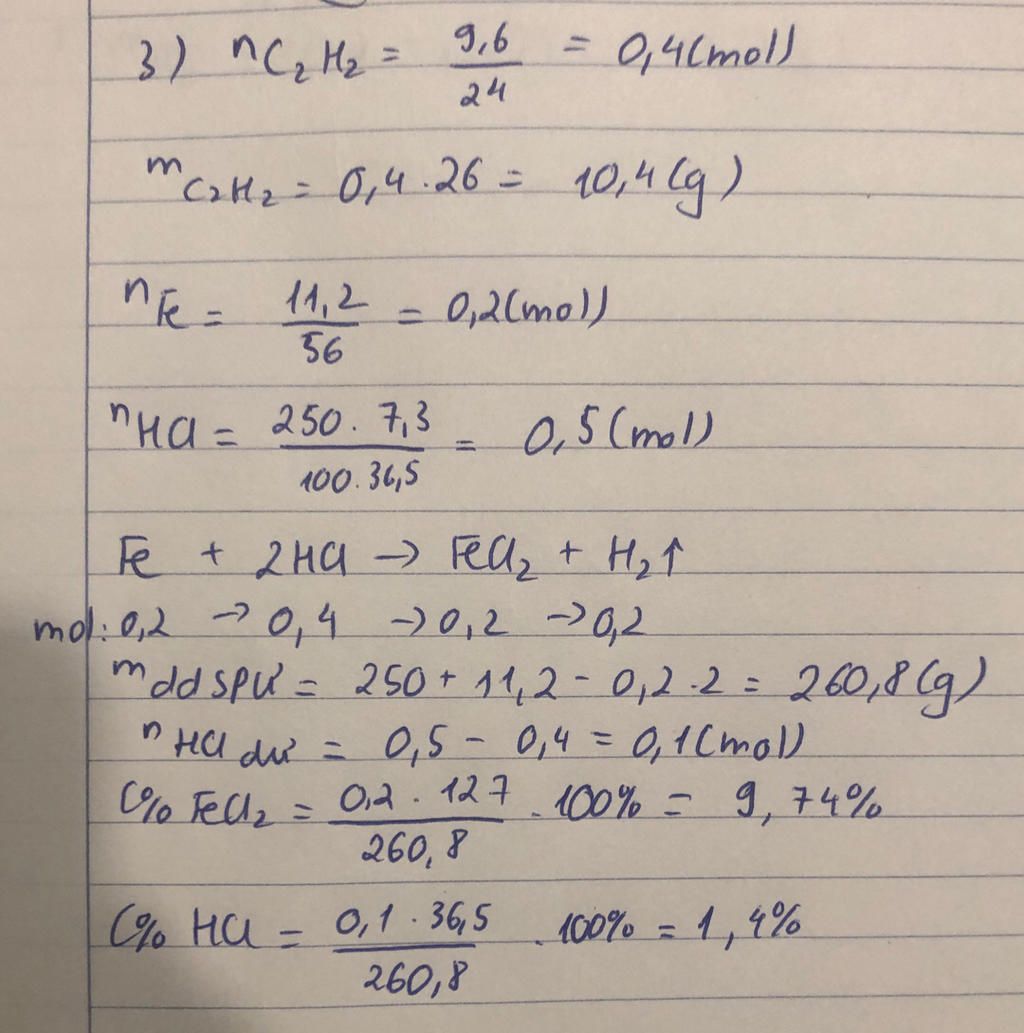 3) nC₂H₂ = 9,6/24 = 0,4(mol)
mC₂H₂ = 0,4.26 = 10,4(g)
nFe = 11,2/56 = 0,2(mol)
nHCl = 250.7,3/100.36,5 = 0,5(mol)
Fe + 2HCl → FeCl₂ + H₂↑
mol: 0,2 → 0,4 → 0,2 → 0,2
mddspư = 250 + 11,2 - 0,2.2 = 260,8(g)
nHCl dư = 0,5 - 0,4 = 0,1(mol)
C% FeCl₂ = 0,2.127/260,8 .100% = 9,74%
C% HCl = 0,1.36,5/260,8 .100% = 1,4%